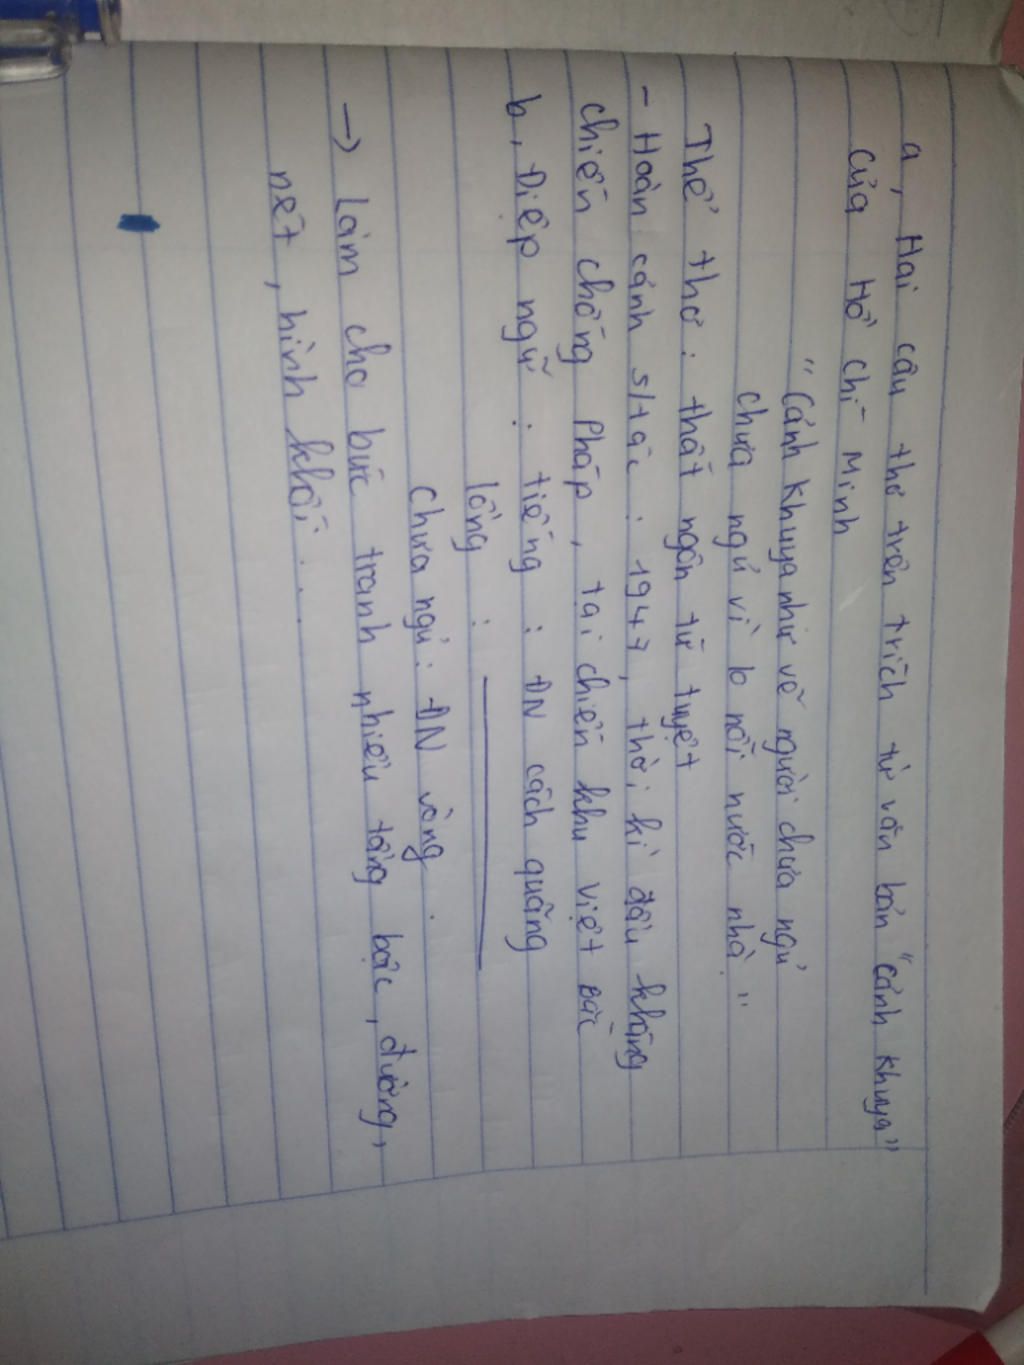 a, Hai câu thơ trên trích từ văn bản "Cảnh khuya"
của Hồ Chí Minh
"Cảnh khuya như vẽ người chưa ngủ
chưa ngủ vì lo nỗi nước nhà"
Thể thơ: thất ngôn tứ tuyệt
- Hoàn cảnh s/tác: 1947, thời kì đầu kháng
chiến chống Pháp, tại chiến khu việt Bắc
b, Điệp ngữ: tiếng: ĐN cách quãng
lồng:
chưa ngủ: ĐN vòng.
→ Làm cho bức tranh nhiều tầng bậc, đường,
nét, hình khối...